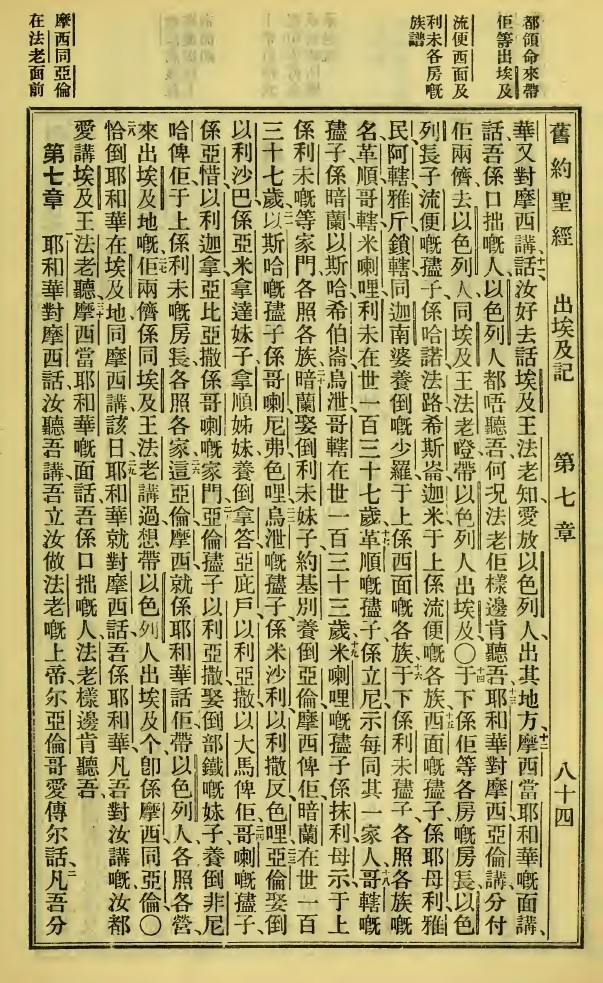 都領命來帶
佢等出埃及
流便西面及
利未各房嘅
族譜
摩西同亞倫
在法老面前
舊約聖經 出埃及記 第七章 八十四
華又對摩西講話十一、汝好去話埃及王法老知愛放以色列人出其地方、十二摩西當耶和華嘅面講、
話吾係口拙嘅人以色列人都唔聽吾何况法老佢樣邊肯聽吾十三、耶和華對摩西亞倫講分付
佢兩儕去以色列人同埃及王法老嗌帶以色列人出埃及〇十四于下係佢等各房嘅房長、以色
列長子流便嘅孻子係哈諾法路希斯崙迦米于上係流便嘅各族、十五西面嘅孻子係耶母利雅
民阿轄雅斤鎖轄同迦南婆養倒嘅少羅于上係西面嘅各族、十六于下係利未孻子各照各族嘅
名、革順哥轄米喇哩利未在世一百三十七歲、十七革順嘅孻子係立尼示每同其一家人、十八哥轄嘅
孻子係暗蘭以斯哈希伯崙烏泄哥轄在世一百三十三歲、十九米喇哩嘅孻子係抹利母示于上
係利未嘅等家門各照各族、二十暗蘭娶倒利未妹子約基別養倒亞倫摩西俾佢暗蘭在世一百
三十七歲、二一以斯哈嘅孻子係哥喇尼弗色哩、二二烏泄嘅孻子係米沙利以利撒反色哩、二三亞倫娶倒
以利沙巴係亞米拿達妹子拿順姊妹養倒拿答亞庇戶以利亞撒以大馬俾佢、二四哥喇嘅孻子
係亞惜以利迦拿亞比亞撒係哥喇嘅家門、二五亞倫孻子以利亞撒娶倒部鐵嘅妹子養倒非尼
哈俾佢于上係利未嘅房長各照各家、二六這亞倫摩西就係耶和華話佢帶以色列人各照各營、
來出埃及地嘅、二七佢兩儕係同埃及王法老講過想帶以色列人出埃及个卽係摩西同亞倫〇
二八恰倒耶和華在埃及地同摩西講該日、二九耶和華就對摩西話吾係耶和華凡吾對汝講嘅汝都
愛講埃及王法老聽、三十摩西當耶和華嘅面話吾係口拙嘅人法老樣邊肯聽吾
第七章 一耶和華對摩西話汝聽吾講吾立汝做法老嘅上帝尔亞倫哥愛傳尔話、二凡吾分